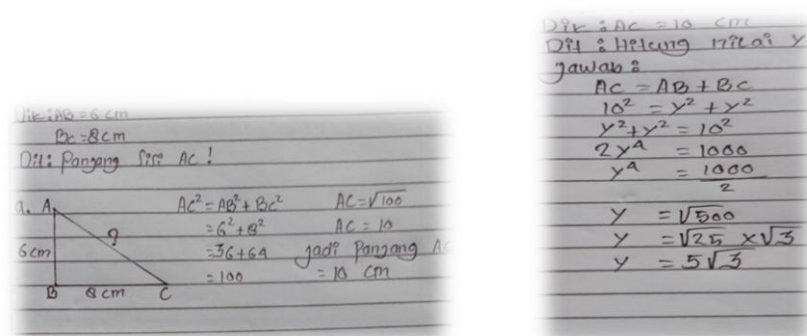 Dik : AB = 6 cm
BC = 8 cm
Dit : Pangang Sisi AC !
a. A
6 cm
?
B 8 cm C
AC² = AB² + BC²
= 6² + 8²
= 36 + 64
= 100
AC = √100
AC = 10
jadi Pangang AC
= 10 cm
Dik : AC = 10 cm
Dit : Hitung nilai y
jawab :
AC = AB + BC
10² = y² + y²
y² + y² = 10²
2y⁴ = 1000
y⁴ = 1000/2
y = √500
y = √25 × √3
y = 5√3